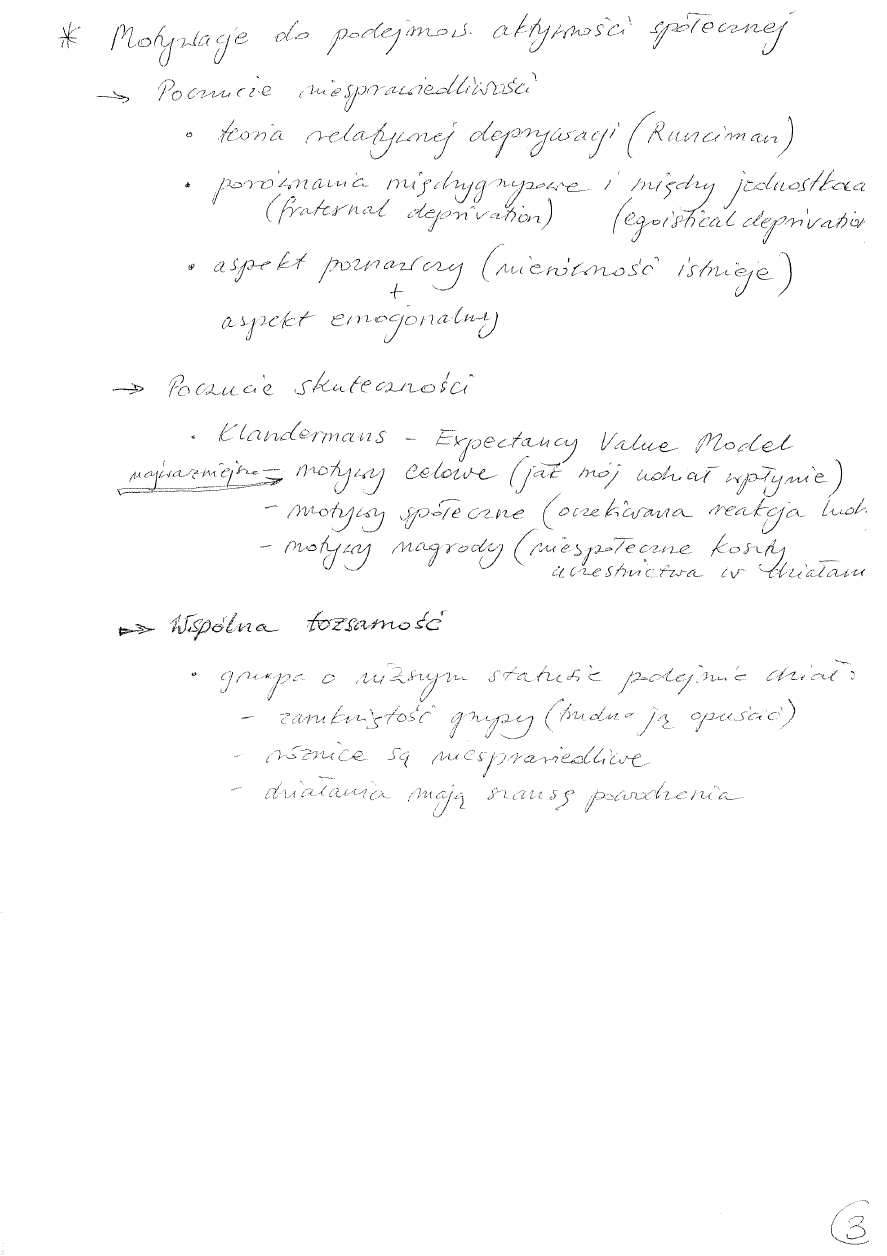 * Motywacje do podejmow. aktywności społecznej
→ Poczucie niesprawiedliwości
• teoria relatywnej deprywacji (Runciman)
• porównania międzygrupowe i między jednostkowe
(fraternal deprivation) (egoistical deprivation
• aspekt poznawczy (nierówność istnieje)
+
aspekt emocjonalny
→ Poczucie skuteczności
• Klandermans – Expectancy Value Model
najważniejsze – motywy celowe (jak mój udział wpłynie)
– motywy społeczne (oczekiwana reakcja ludz
– motywy nagrody (niespołeczne koszty
uczestnictwa w działani
→ Wspólna tożsamość
• grupa o niższym statusie podejmie dział:
– zamkniętość grupy (trudno ją opuścić)
– różnice są niesprawiedliwe
– działania mają szansę powodzenia
3